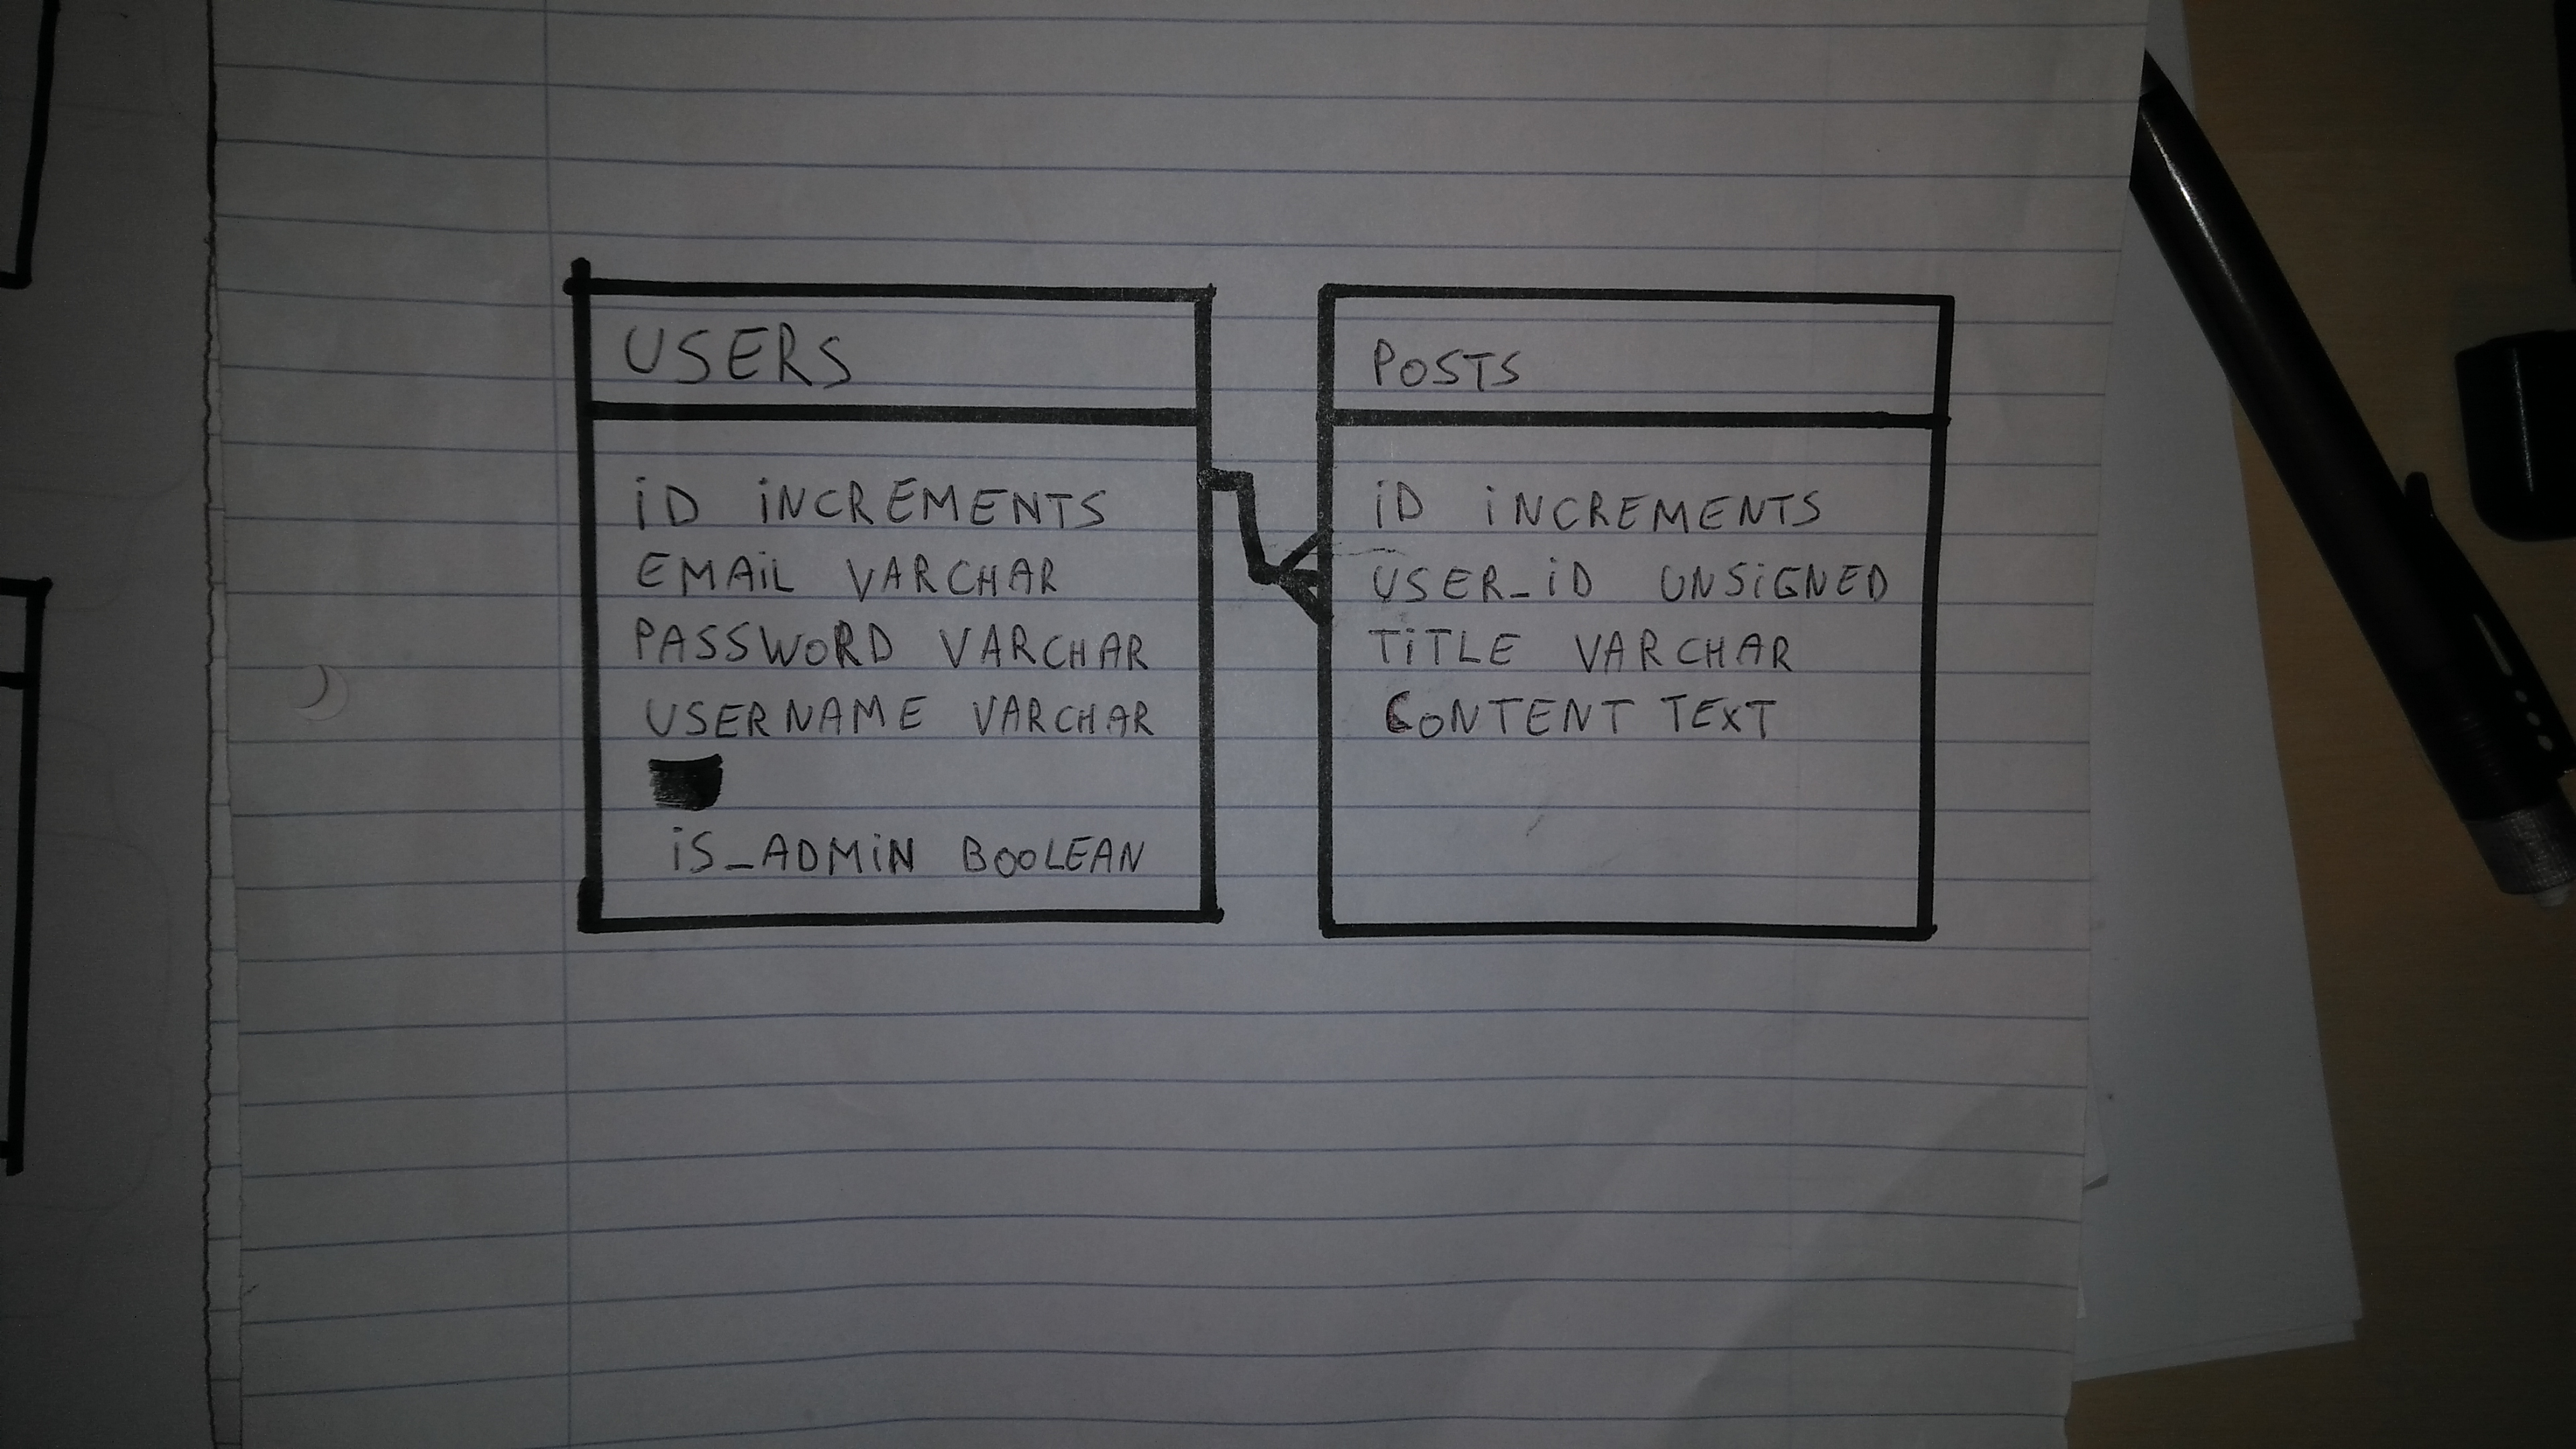 USERS
iD iNCREMENTS
EMAiL VARCHAR
PASSWORD VARCHAR
USERNAME VARCHAR
iS_ADMiN BOOLEAN
POSTS
iD iNCREMENTS
USER_iD UNSiGNED
TiTLE VARCHAR
CONTENT TEXT